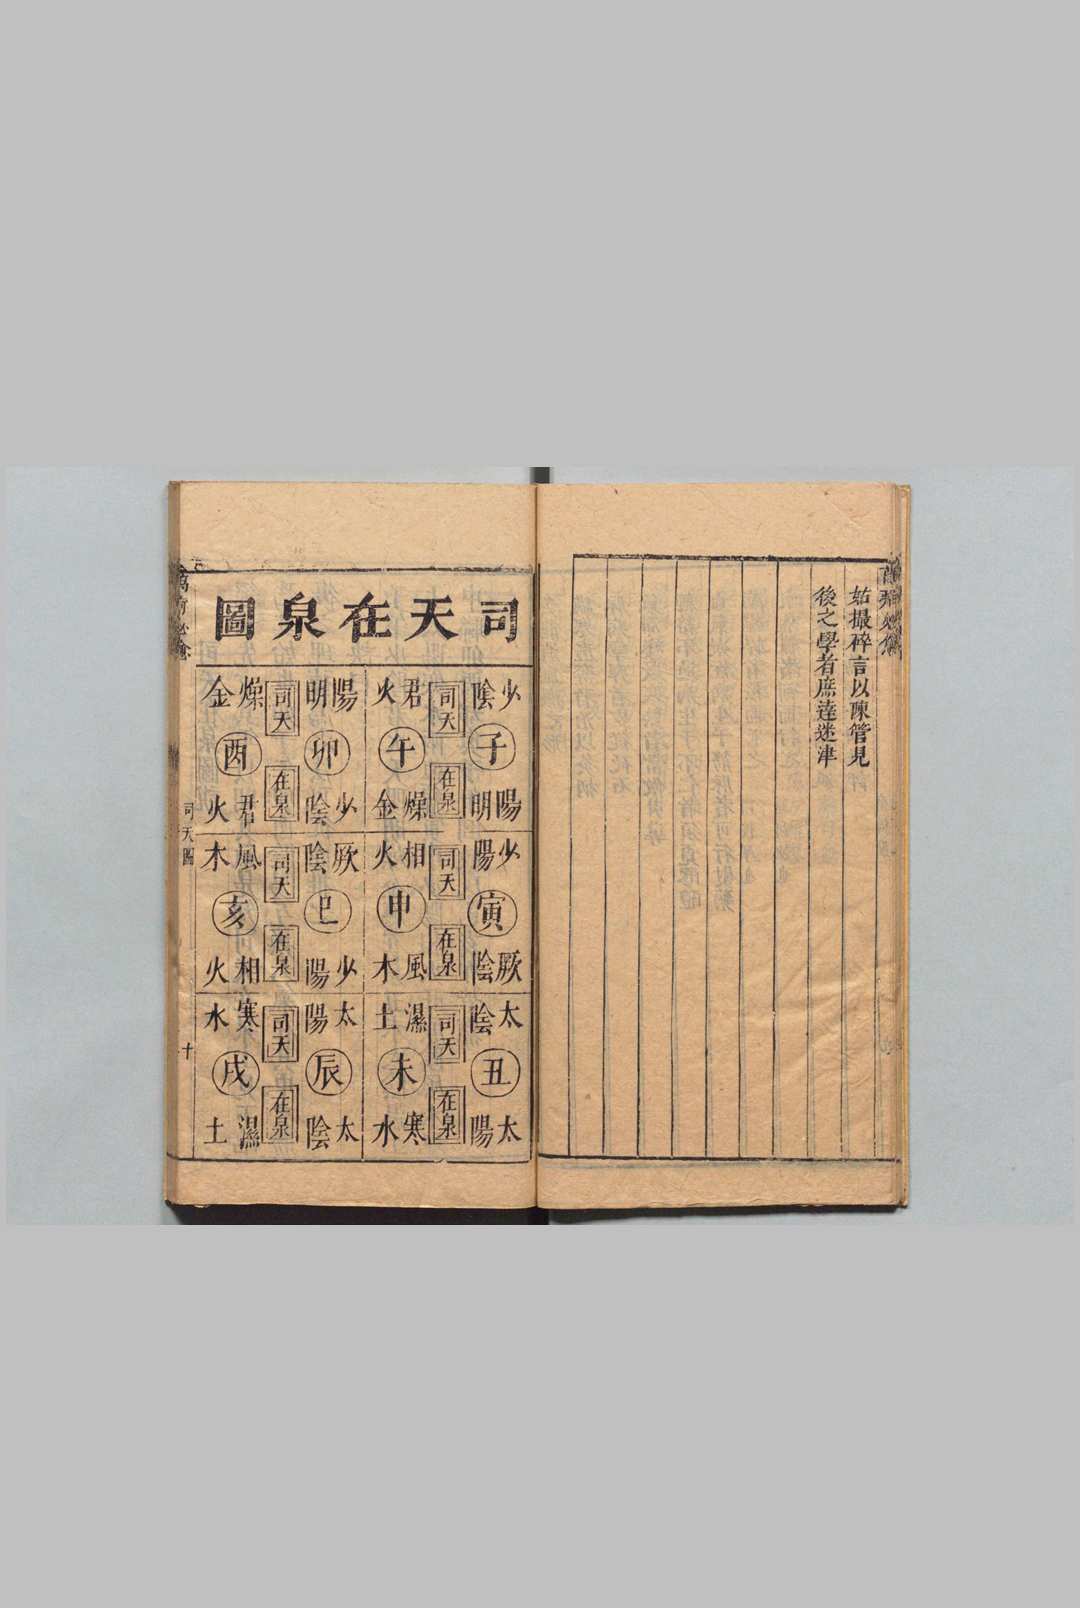 姑撮碎言以陳管見
後之學者庶達迷津
司天在泉圖
少陰 司天 君火
子 午
陽明 在泉 燥金
陽明 司天 燥金
卯 酉
少陰 在泉 君火
少陽 司天 相火
寅 申
厥陰 在泉 風木
厥陰 司天 風木
巳 亥
少陽 在泉 相火
太陰 司天 濕土
丑 未
太陽 在泉 寒水
太陽 司天 寒水
辰 戌
太陰 在泉 濕土
司天圖
十